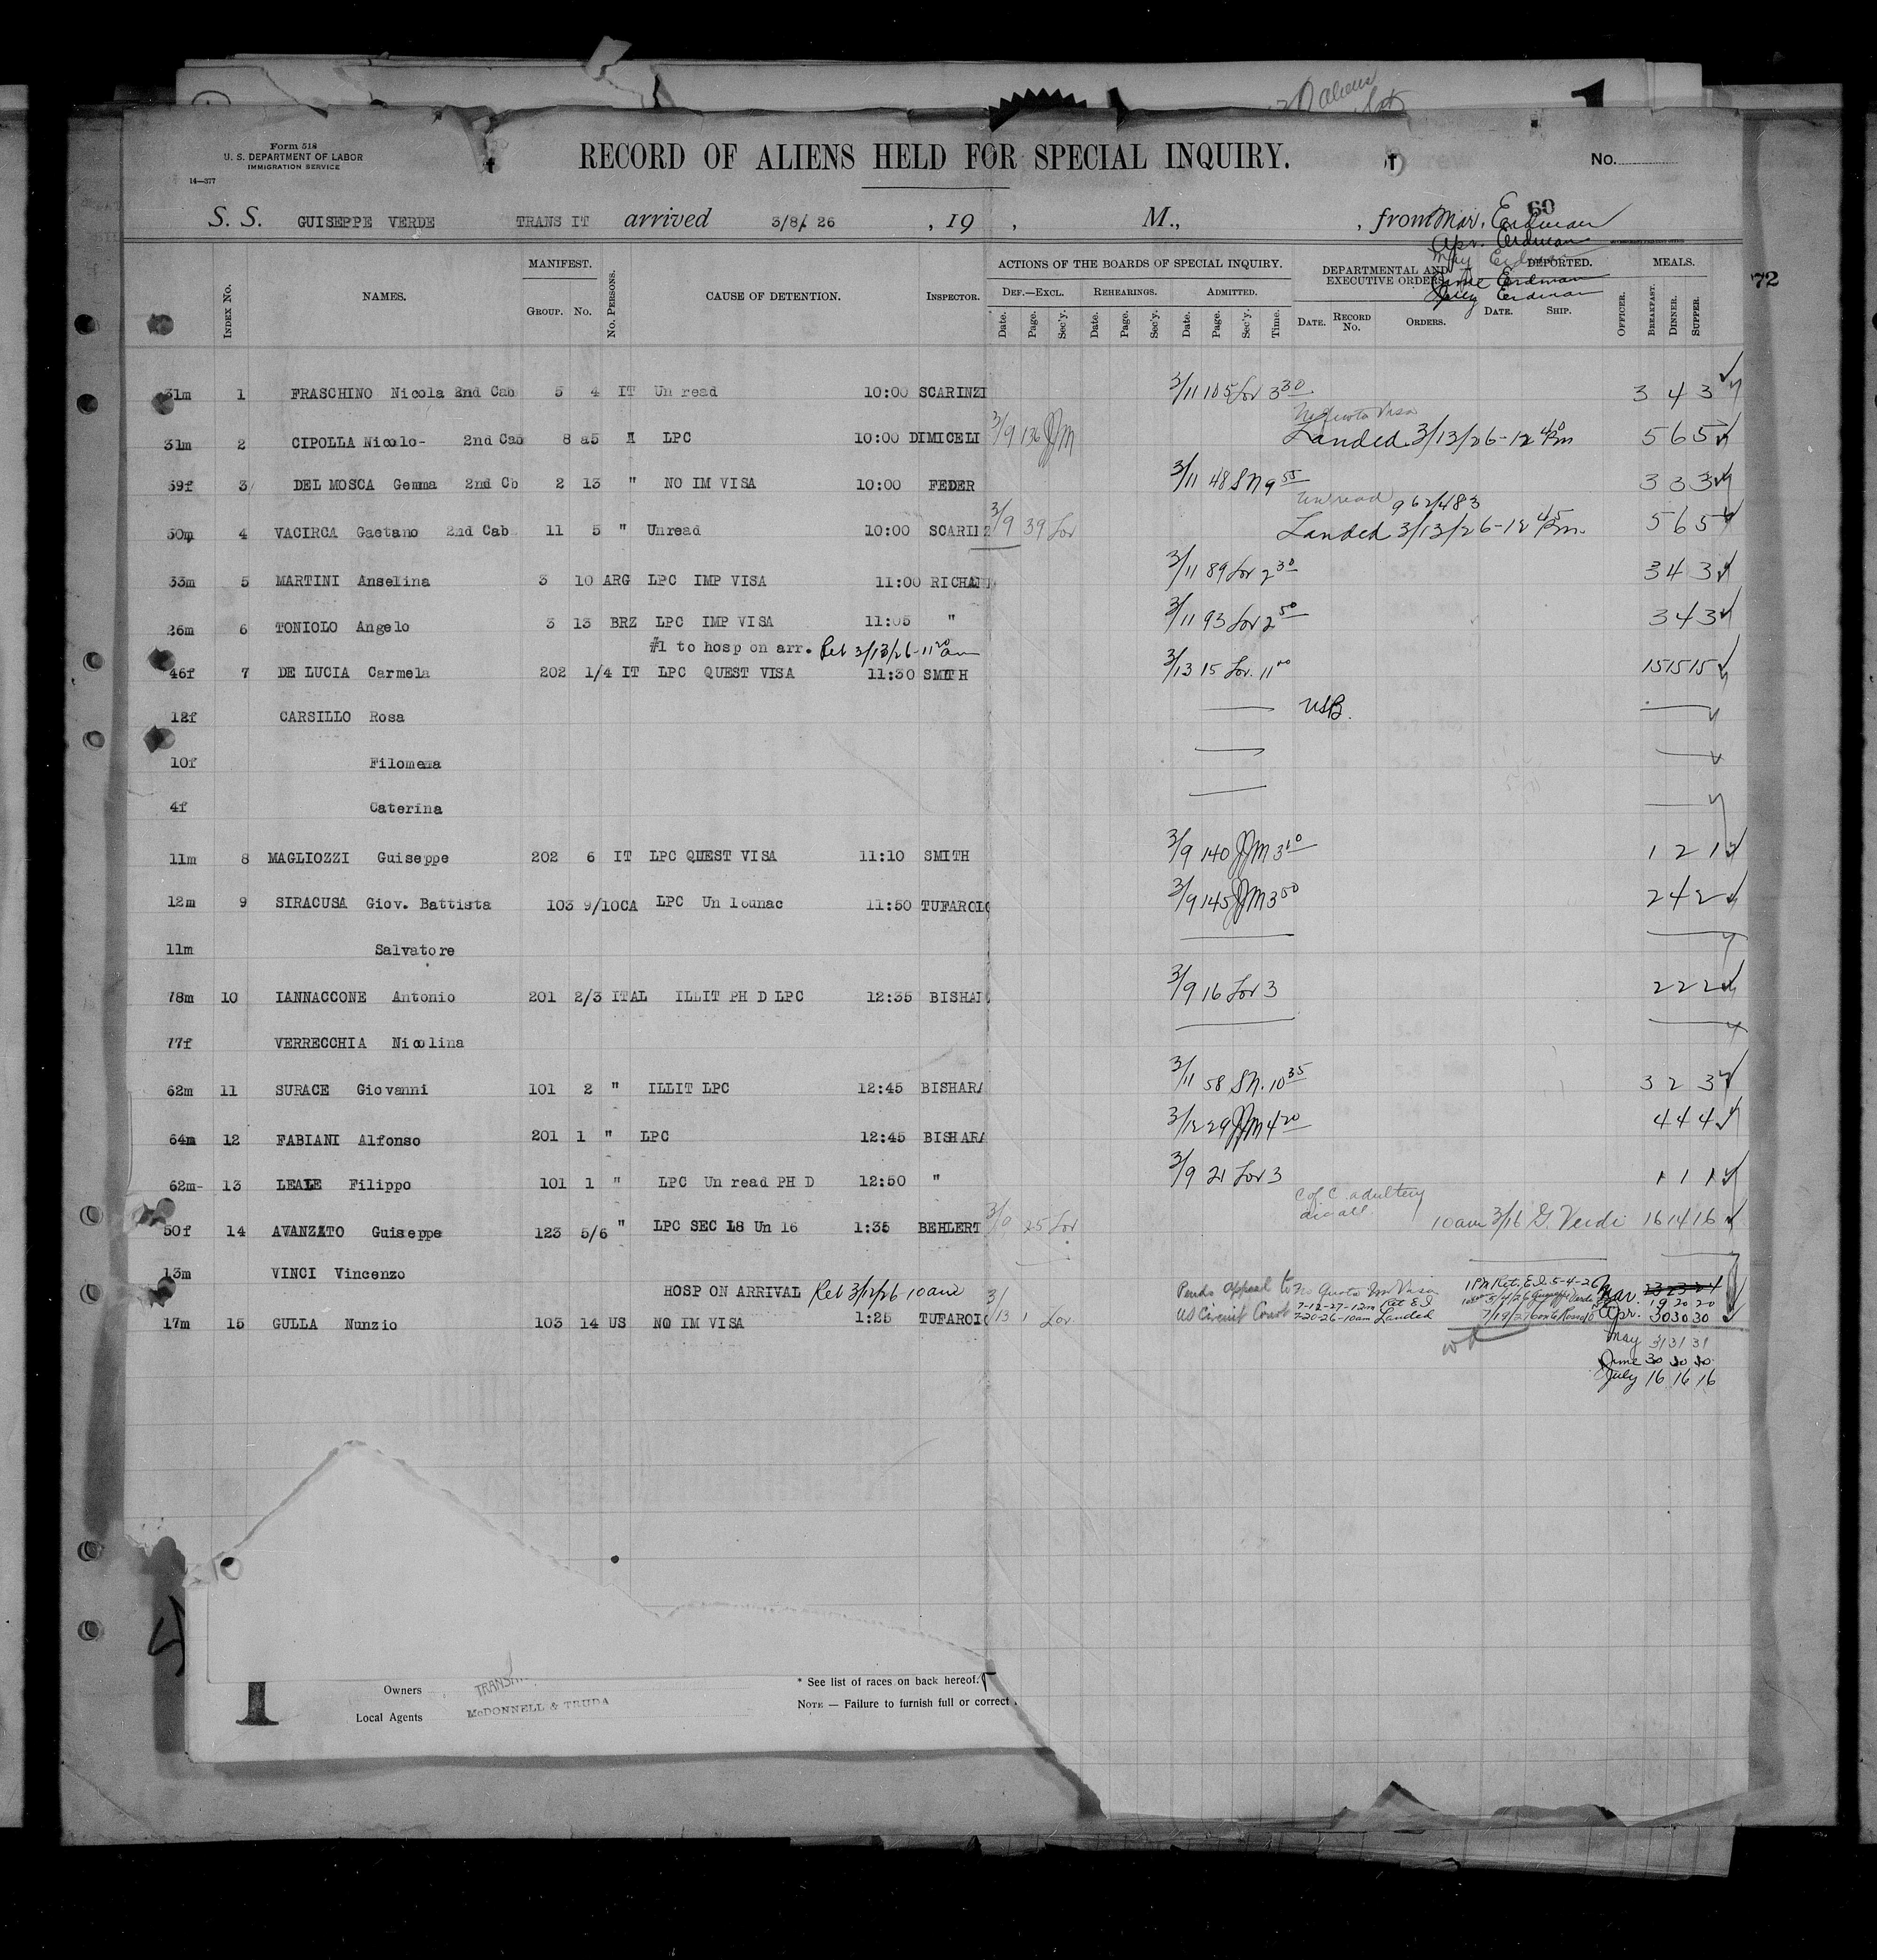 aliens
Form 518
U. S. DEPARTMENT OF LABOR
IMMIGRATION SERVICE
14—377
RECORD OF ALIENS HELD FOR SPECIAL INQUIRY.
No.
60
S. S. GUISEPPE VERDE TRANS IT arrived 3/8/ 26 , 19 , M., , from Mar. Erdman
Apr. Erdman
May Erdman
June Erdman
July Erdman
72
INDEX No. NAMES. MANIFEST. GROUP. No. No. PERSONS. CAUSE OF DETENTION. INSPECTOR.
ACTIONS OF THE BOARDS OF SPECIAL INQUIRY. DEF.—EXCL. REHEARINGS. ADMITTED.
Date. Page. Sec'y. Date. Page. Sec'y. Date. Page. Sec'y. Time.
DEPARTMENTAL AND EXECUTIVE ORDERS DATE. RECORD No. ORDERS.
DEPORTED. DATE. SHIP. OFFICER. MEALS. BREAKFAST. DINNER. SUPPER.
31m 1 FRASCHINO Nicola 2nd Cab 5 4 IT Un read 10:00 SCARINZI 3/11 105 Lor 3 30 3 4 3
No Quota Visa
31m 2 CIPOLLA Nicolo- 2nd Cab 8 a5 LPC 10:00 DIMICELI 3/9 136 JJM Landed 3/13/26-12 40 Pm 5 6 5
59f 3 DEL MOSCA Gemma 2nd Cb 2 13 " NO IM VISA 10:00 FEDER 3/11 48 SN 9 55 3 3 3
Unread 962/483
50m 4 VACIRCA Gaetano 2nd Cab 11 5 " Unread 10:00 SCARIN 3/9 39 Lor Landed 3/13/26-12 45 Pm. 5 6 5
33m 5 MARTINI Anselina 3 10 ARG LPC IMP VISA 11:00 RICHARD 3/11 89 Lor 2 30 3 4 3
26m 6 TONIOLO Angelo 3 13 BRZ LPC IMP VISA 11:05 " 3/11 93 Lor 2 50 3 4 3
#1 to hosp on arr. Ret 3/13/26-11 20 am
46f 7 DE LUCIA Carmela 202 1/4 IT LPC QUEST VISA 11:30 SMITH 3/13 15 Lor. 11 00 15 15 15
12f CARSILLO Rosa USB.
10f Filomena
4f Caterina
11m 8 MAGLIOZZI Guiseppe 202 6 IT LPC QUEST VISA 11:10 SMITH 3/9 140 JJM 3 10 1 2 1
12m 9 SIRACUSA Giov. Battista 103 9/10CA LPC Un lounac 11:50 TUFAROLO 3/9 145 JJM 3 50 2 4 2
11m Salvatore
78m 10 IANNACCONE Antonio 201 2/3 ITAL ILLIT PH D LPC 12:35 BISHAR 3/9 16 Lor 3 2 2 2
77f VERRECCHIA Nicolina
62m 11 SURACE Giovanni 101 2 " ILLIT LPC 12:45 BISHARA 3/11 58 SN. 10 35 3 2 3
64m 12 FABIANI Alfonso 201 1 " LPC 12:45 BISHARA 3/12 29 JJM 4 20 4 4 4
62m- 13 LEALE Filippo 101 1 " LPC Un read PH D 12:50 " 3/9 21 Lor 3 1 1 1
C of C adultery
50f 14 AVANZATO Guiseppe 123 5/6 " LPC SEC 18 Un 16 1:35 BEHLERT 25 Lor 10am 3/16 G. Verdi 16 14 16
13m VINCI Vincenzo
HOSP ON ARRIVAL Ret 3/12/26-10am Pends Appeal to No Quota Im Visa 1 PM Ret. E.I. 5-4-26 Mar. 19 20 20
17m 15 GULLA Nunzio 103 14 US NO IM VISA 1:25 TUFAROLO 3/13 1 Lor. US Circuit Court 7-20-26-10am Landed Apr. 30 30 30
May 31 31 31
June 30 30 30
July 16 16 16
Owners TRANS
Local Agents McDONNELL & TRUDA
* See list of races on back hereof.
NOTE — Failure to furnish full or correct